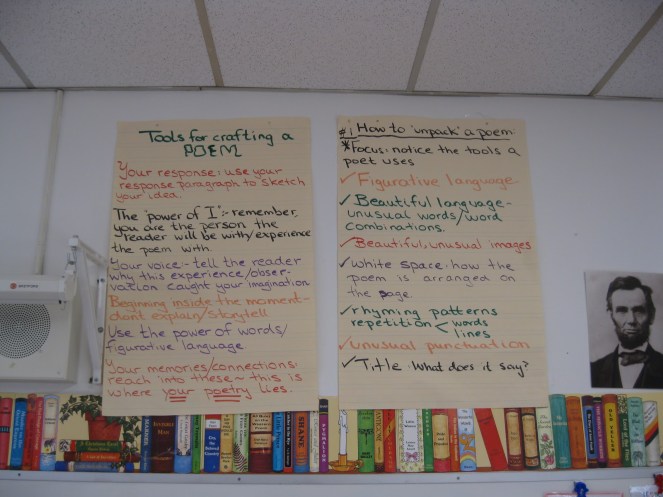 Tools for crafting a
POEM
Your response: use your
response paragraph to sketch
your idea.
The "power of I":- remember,
you are the person the
reader will be with/experience
the poem with
Your voice:- tell the reader
why this experience/obser-
vation caught your imagination
Beginning inside the moment-
dont explain/storytell
Use the power of words/
figurative language
Your memories/connections:
reach into these ~ this is
where your poetry lies.
#1 How to "unpack" a poem
*Focus: notice the tools a
poet uses
✓Figurative language
✓Beautiful language-
unusual words/word
combinations.
✓Beautiful, unusual images
✓white space:-how the
poem is arranged on
the page.
✓rhyming patterns
repetition < words
lines
✓unusual punctuation
✓Title: What does it say?
SHANE